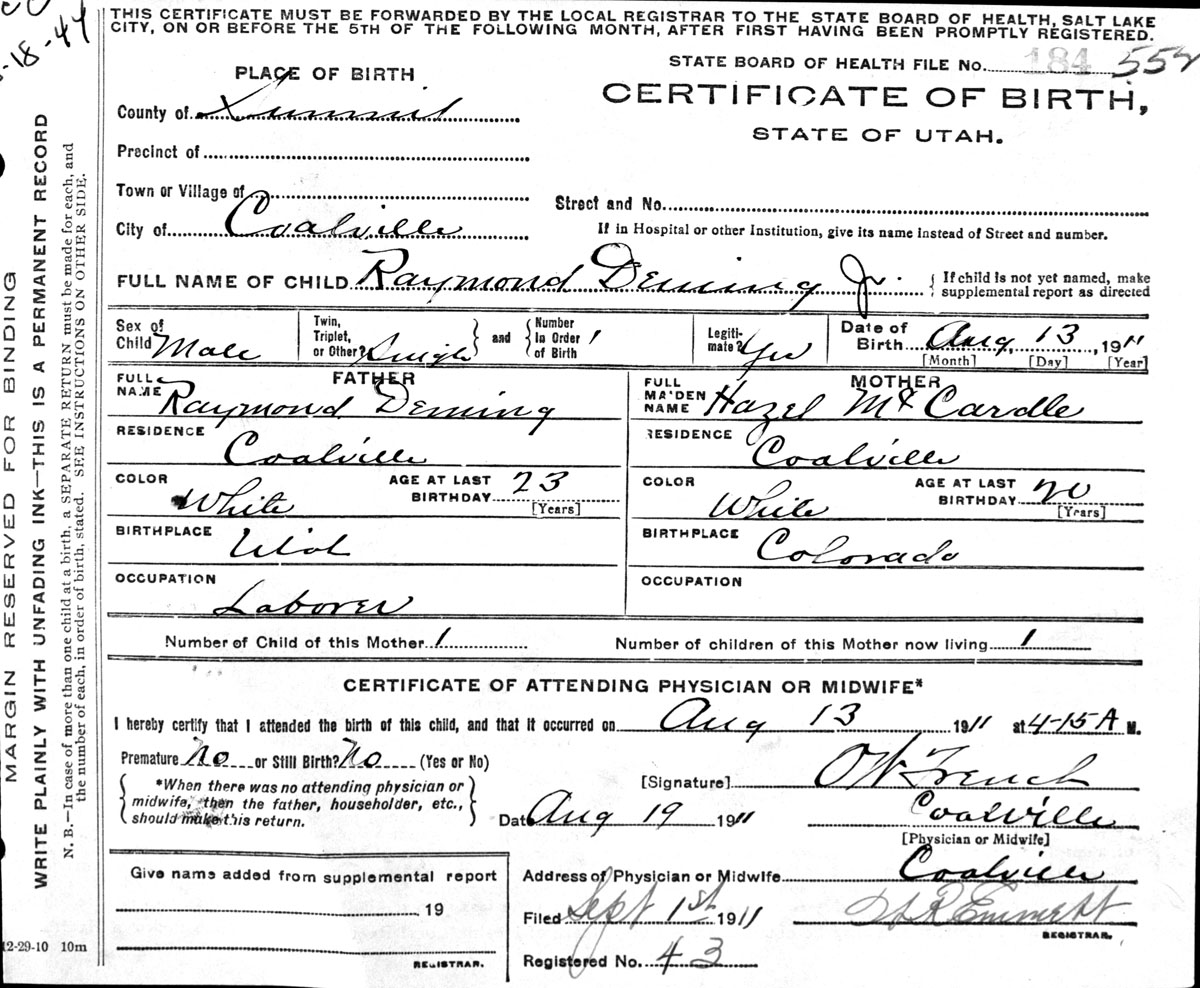 THIS CERTIFICATE MUST BE FORWARDED BY THE LOCAL REGISTRAR TO THE STATE BOARD OF HEALTH, SALT LAKE
CITY, ON OR BEFORE THE 5TH OF THE FOLLOWING MONTH, AFTER FIRST HAVING BEEN PROMPTLY REGISTERED.
-18-44
STATE BOARD OF HEALTH FILE No. 184 552
PLACE OF BIRTH
CERTIFICATE OF BIRTH,
STATE OF UTAH.
County of Summit
Precinct of
Town or Village of
Street and No.
City of Coalville
If in Hospital or other Institution, give its name instead of Street and number.
FULL NAME OF CHILD Raymond Deming Jr. { If child is not yet named, make
supplemental report as directed
Sex of
Child Male
Twin,
Triplet,
or Other? Single } and { Number
In Order
of Birth 1
Legiti-
mate? Yes
Date of
Birth Aug, 13, 1911
[Month] [Day] [Year]
FATHER
FULL
NAME Raymond Deming
RESIDENCE
Coalville
COLOR
White
AGE AT LAST
BIRTHDAY 23
[Years]
BIRTHPLACE
Utah
OCCUPATION
Laborer
MOTHER
FULL
MAIDEN
NAME Hazel Mc Cardle
RESIDENCE
Coalville
COLOR
White
AGE AT LAST
BIRTHDAY 20
[Years]
BIRTHPLACE
Colorado
OCCUPATION
Number of Child of this Mother 1 Number of children of this Mother now living 1
CERTIFICATE OF ATTENDING PHYSICIAN OR MIDWIFE*
I hereby certify that I attended the birth of this child, and that it occurred on Aug 13 1911 at 4-15 A M.
Premature No or Still Birth? No (Yes or No)
{ *When there was no attending physician or
midwife, then the father, householder, etc.,
should make this return. }
[Signature] O W French
Date Aug 19 1911 Coalville
[Physician or Midwife]
Give name added from supplemental report
19
REGISTRAR.
Address of Physician or Midwife Coalville
Filed Sept 1st 1911 Emmett
REGISTRAR.
Registered No. 43
12-29-10 10m
MARGIN RESERVED FOR BINDING
WRITE PLAINLY WITH UNFADING INK—THIS IS A PERMANENT RECORD
N. B.—In case of more than one child at a birth, a SEPARATE RETURN must be made for each, and
the number of each, in order of birth, stated. SEE INSTRUCTIONS ON OTHER SIDE.